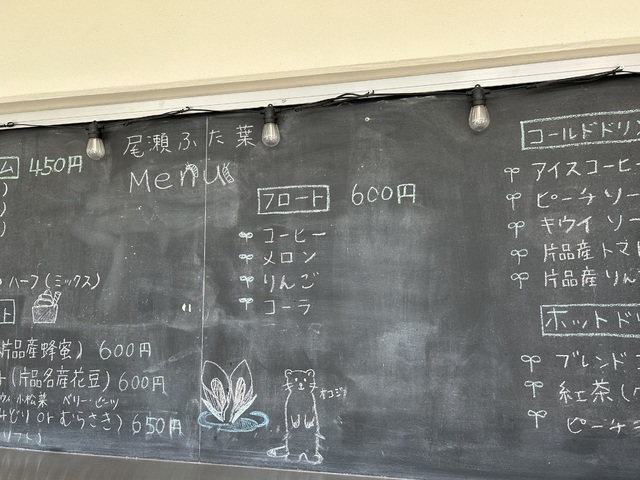 尾瀬ふた葉
Menu
ム 450円
)
)
)
ハーブ(ミックス)
ト
片品産蜂蜜) 600円
(片品名産花豆) 600円
小松菜 ベリー・ビーツ
みどり or むらさき) 650円
フト)
フロート 600円
コーヒー
メロン
りんご
コーラ
オコジョ
コールドドリン
アイスコーヒ
ピーチソー
キウイ ソー
片品産トマト
片品産りん
ホットドリ
ブレンド
紅茶(
ピーチ